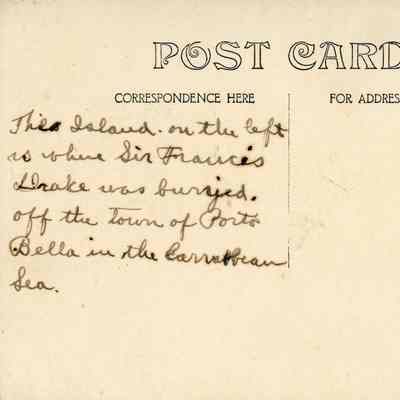 POST CARD
CORRESPONDENCE HERE
FOR ADDRES
This Island. on the left
is where Sir Francis
Drake was burried.
off the town of Porto
Bella in the Carrabean
Sea.